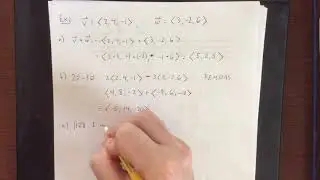 Ex: v = <2, 4, -1> w = <3, -2, 6>
a) v + w = <2, 4, -1> + <3, -2, 6>
= <2+3, 4+(-2), -1+6> = <5, 2, 5>
b) 2v - 3w 2<2, 4, -1> - 3<3, -2, 6>
<4, 8, -2> + <-9, 6, -18>
= <-5, 14, -20>
c)